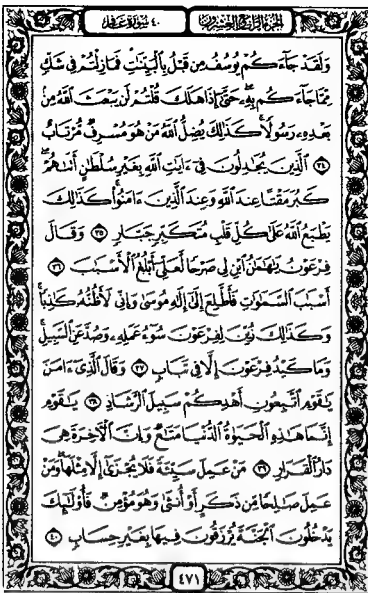 الجزء الرابع والعشرون
٤٠ سورة غافر
وَلَقَدْ جَآءَكُمْ يُوسُفُ مِن قَبْلُ بِالْبَيِّنَٰتِ فَمَازِلْتُمْ فِى شَكٍّ
مِّمَّا جَآءَكُم بِهِۦ حَتَّىٰٓ إِذَا هَلَكَ قُلْتُمْ لَن يَبْعَثَ ٱللَّهُ مِنۢ
بَعْدِهِۦ رَسُولًا ۚ كَذَٰلِكَ يُضِلُّ ٱللَّهُ مَنْ هُوَ مُسْرِفٌ مُّرْتَابٌ
٣٤ ٱلَّذِينَ يُجَٰدِلُونَ فِىٓ ءَايَٰتِ ٱللَّهِ بِغَيْرِ سُلْطَٰنٍ أَتَىٰهُمْ ۖ
كَبُرَ مَقْتًا عِندَ ٱللَّهِ وَعِندَ ٱلَّذِينَ ءَامَنُوا۟ ۚ كَذَٰلِكَ
يَطْبَعُ ٱللَّهُ عَلَىٰ كُلِّ قَلْبِ مُتَكَبِّرٍ جَبَّارٍ ٣٥ وَقَالَ
فِرْعَوْنُ يَٰهَٰمَٰنُ ٱبْنِ لِى صَرْحًا لَّعَلِّىٓ أَبْلُغُ ٱلْأَسْبَٰبَ ٣٦
أَسْبَٰبَ ٱلسَّمَٰوَٰتِ فَأَطَّلِعَ إِلَىٰٓ إِلَٰهِ مُوسَىٰ وَإِنِّى لَأَظُنُّهُۥ كَٰذِبًا ۚ
وَكَذَٰلِكَ زُيِّنَ لِفِرْعَوْنَ سُوٓءُ عَمَلِهِۦ وَصُدَّ عَنِ ٱلسَّبِيلِ ۚ
وَمَا كَيْدُ فِرْعَوْنَ إِلَّا فِى تَبَابٍ ٣٧ وَقَالَ ٱلَّذِىٓ ءَامَنَ
يَٰقَوْمِ ٱتَّبِعُونِ أَهْدِكُمْ سَبِيلَ ٱلرَّشَادِ ٣٨ يَٰقَوْمِ
إِنَّمَا هَٰذِهِ ٱلْحَيَوٰةُ ٱلدُّنْيَا مَتَٰعٌ وَإِنَّ ٱلْءَاخِرَةَ هِىَ
دَارُ ٱلْقَرَارِ ٣٩ مَنْ عَمِلَ سَيِّئَةً فَلَا يُجْزَىٰٓ إِلَّا مِثْلَهَا ۖ وَمَنْ
عَمِلَ صَٰلِحًا مِّن ذَكَرٍ أَوْ أُنثَىٰ وَهُوَ مُؤْمِنٌ فَأُو۟لَٰٓئِكَ
يَدْخُلُونَ ٱلْجَنَّةَ يُرْزَقُونَ فِيهَا بِغَيْرِ حِسَابٍ ٤٠
٤٧١